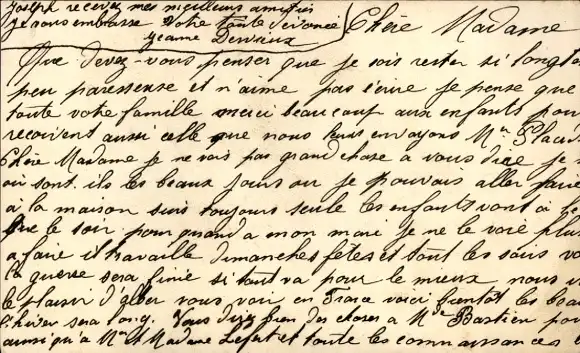 Joseph recevez mes meilleurs amitiés
Je vous embrasse Votre toute dévouée
Jeanne
Chère Madame
Que devez-vous penser que je sois rester si longte
peu paresseuse et n'aime pas écrire je pense que
toute votre famille merci beaucoup aux enfants pou
recoivent aussi celle que nous leurs envoyons Mr
Chère Madame je ne vois pas grand chose a vous dire je s
où sont ils les beaux jours ou je pouvais aller faire
a la maison suis toujours seule les enfants vont à
que le soir pour quand a mon mari je ne le voie plus
a faire il travaille dimanches fêtes et tout les soirs vo
la guerre sera finie si tout va pour le mieux nous
le plaisir d'aller vous voir en France voici bientôt les bea
l'hiver sera long. Vous direz bien des choses a Me Bastien pou
ainsi qu'a Mr et Madame Lefort et toute les connaissances